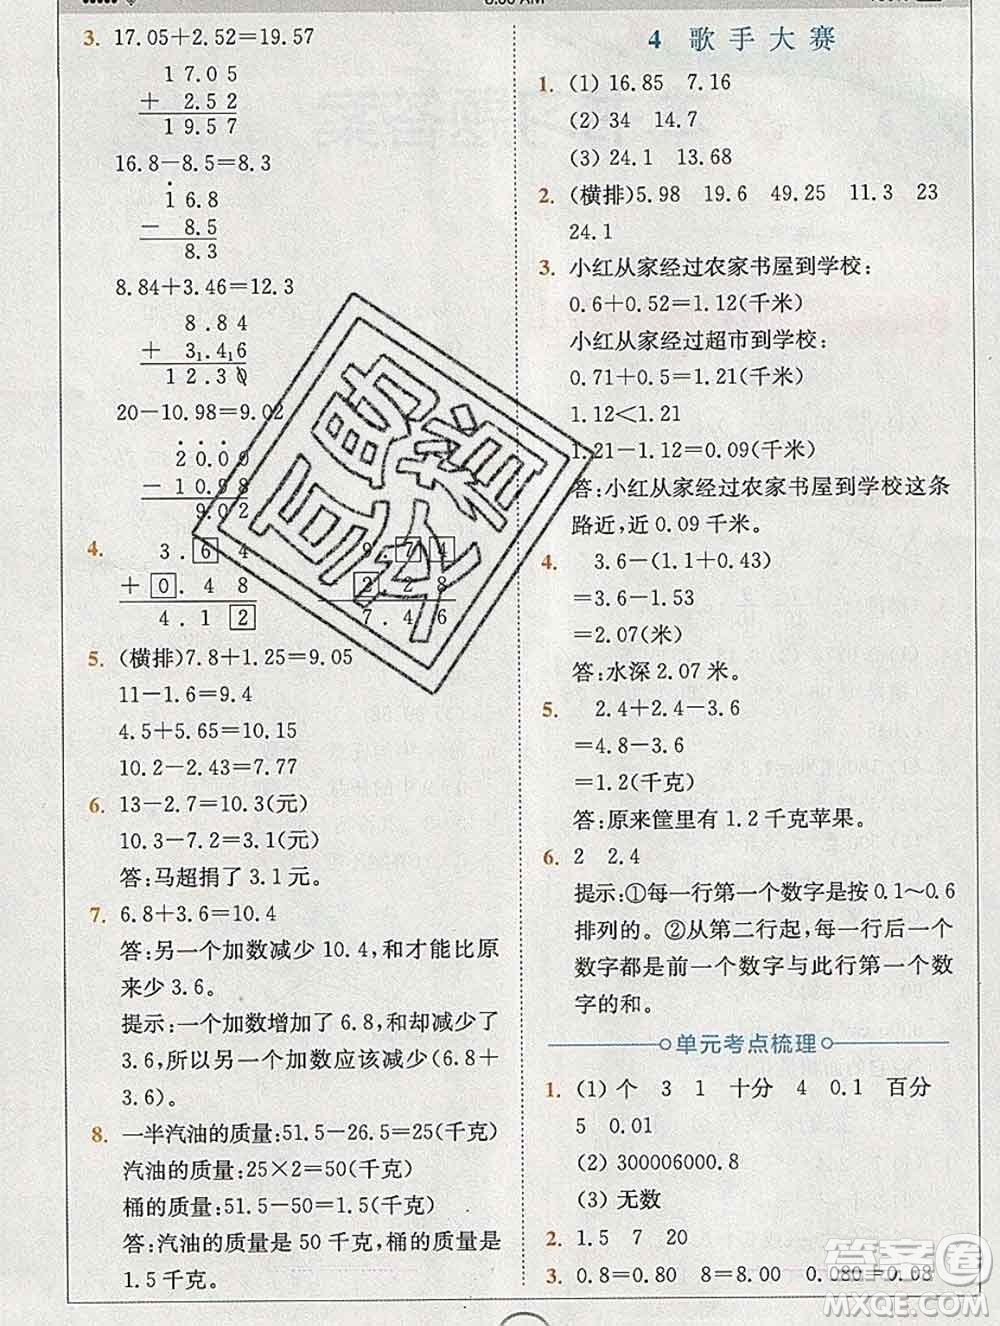 3. 17.05+2.52=19.57
17.05
+ 2.52
19.57
16.8-8.5=8.3
16.8
- 8.5
8.3
8.84+3.46=12.3
8.84
+ 3.46
12.30
20-10.98=9.02
20.00
-10.98
9.02
4. 3.64 9.74
+0.48 2.28
4.12 7.46
5. (横排)7.8+1.25=9.05
11-1.6=9.4
4.5+5.65=10.15
10.2-2.43=7.77
6. 13-2.7=10.3(元)
10.3-7.2=3.1(元)
答:马超捐了 3.1 元。
7. 6.8+3.6=10.4
答:另一个加数减少 10.4,和才能比原
来少 3.6。
提示:一个加数增加了 6.8,和却减少了
3.6,所以另一个加数应该减少(6.8+
3.6)。
8. 一半汽油的质量:51.5-26.5=25(千克)
汽油的质量:25×2=50(千克)
桶的质量:51.5-50=1.5(千克)
答:汽油的质量是 50 千克,桶的质量是
1.5 千克。
4 歌手大赛
1. (1) 16.85 7.16
(2) 34 14.7
(3) 24.1 13.68
2. (横排)5.98 19.6 49.25 11.3 23
24.1
3. 小红从家经过农家书屋到学校:
0.6+0.52=1.12(千米)
小红从家经过超市到学校:
0.71+0.5=1.21(千米)
1.12<1.21
1.21-1.12=0.09(千米)
答:小红从家经过农家书屋到学校这条
路近,近 0.09 千米。
4. 3.6-(1.1+0.43)
=3.6-1.53
=2.07(米)
答:水深 2.07 米。
5. 2.4+2.4-3.6
=4.8-3.6
=1.2(千克)
答:原来筐里有 1.2 千克苹果。
6. 2 2.4
提示:①每一行第一个数字是按 0.1~0.6
排列的。②从第二行起,每行后一个
数字都是前一个数字与此行第一个数
字的和。
单元考点梳理
1. (1) 个 3 1 十分 4 0.1 百分
5 0.01
(2) 300006000.8
(3) 无数
2. 1.5 7 20
3. 0.8=0.80 8=8.00 0.080=0.08
答案圈
MXQE.COM